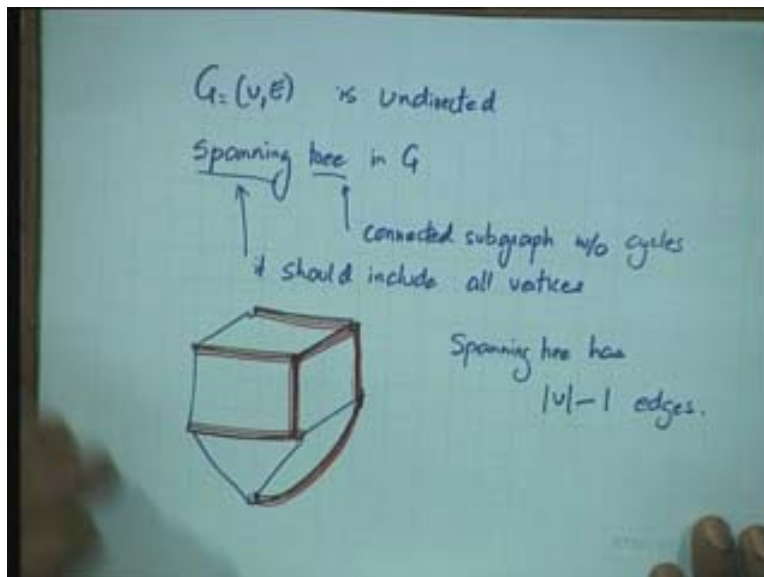 G=(V,E) is Undirected
Spanning tree in G
connected subgraph w/o cycles
it should include all vertices
Spanning tree has
|V|-1 edges.